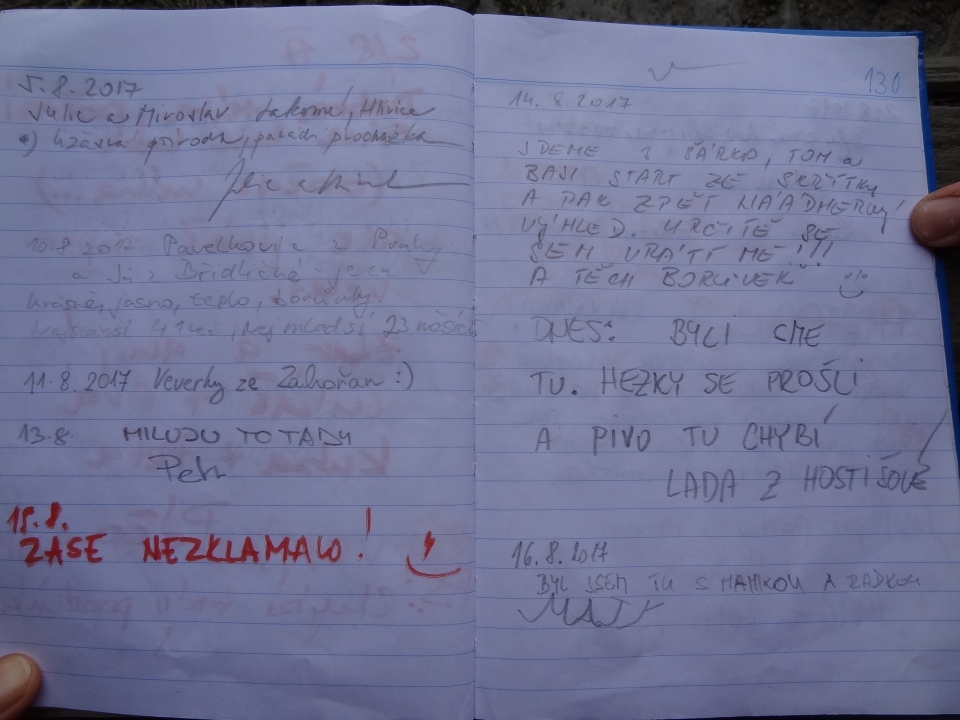 5.8.2017
Julie a Miroslav Hlivice
*) Úžasná příroda, parádní procházka
10.8.2017 Pavelkovic z Prahy
a Já z Břidličné - jsem
krásně, jasno, teplo, borůvky
Nejstarší 41 let, Nejmladší 23 měsíců
11.8.2017 Veverky ze Zahořan :)
13.8. MILUJU TO TADY
Petr
15.8.
ZASE NEZKLAMALO!
130
14.8.2017
JDEME ŠÁRKA, TOM a
BAJI START ZE SKŘÍTKU
A PAK ZPĚT NÁDHERNÝ
VÝHLED. URČITĚ SE
SEM VRÁTÍME!!!
A TĚCH BORŮVEK
DNES: BYLI SME
TU. HEZKY SE PROŠLI
A PIVO TU CHYBÍ
LADA Z HOSTIŠOVÉ
16.8.2017
BYL JSEM TU S MAMKOU A RADKOU